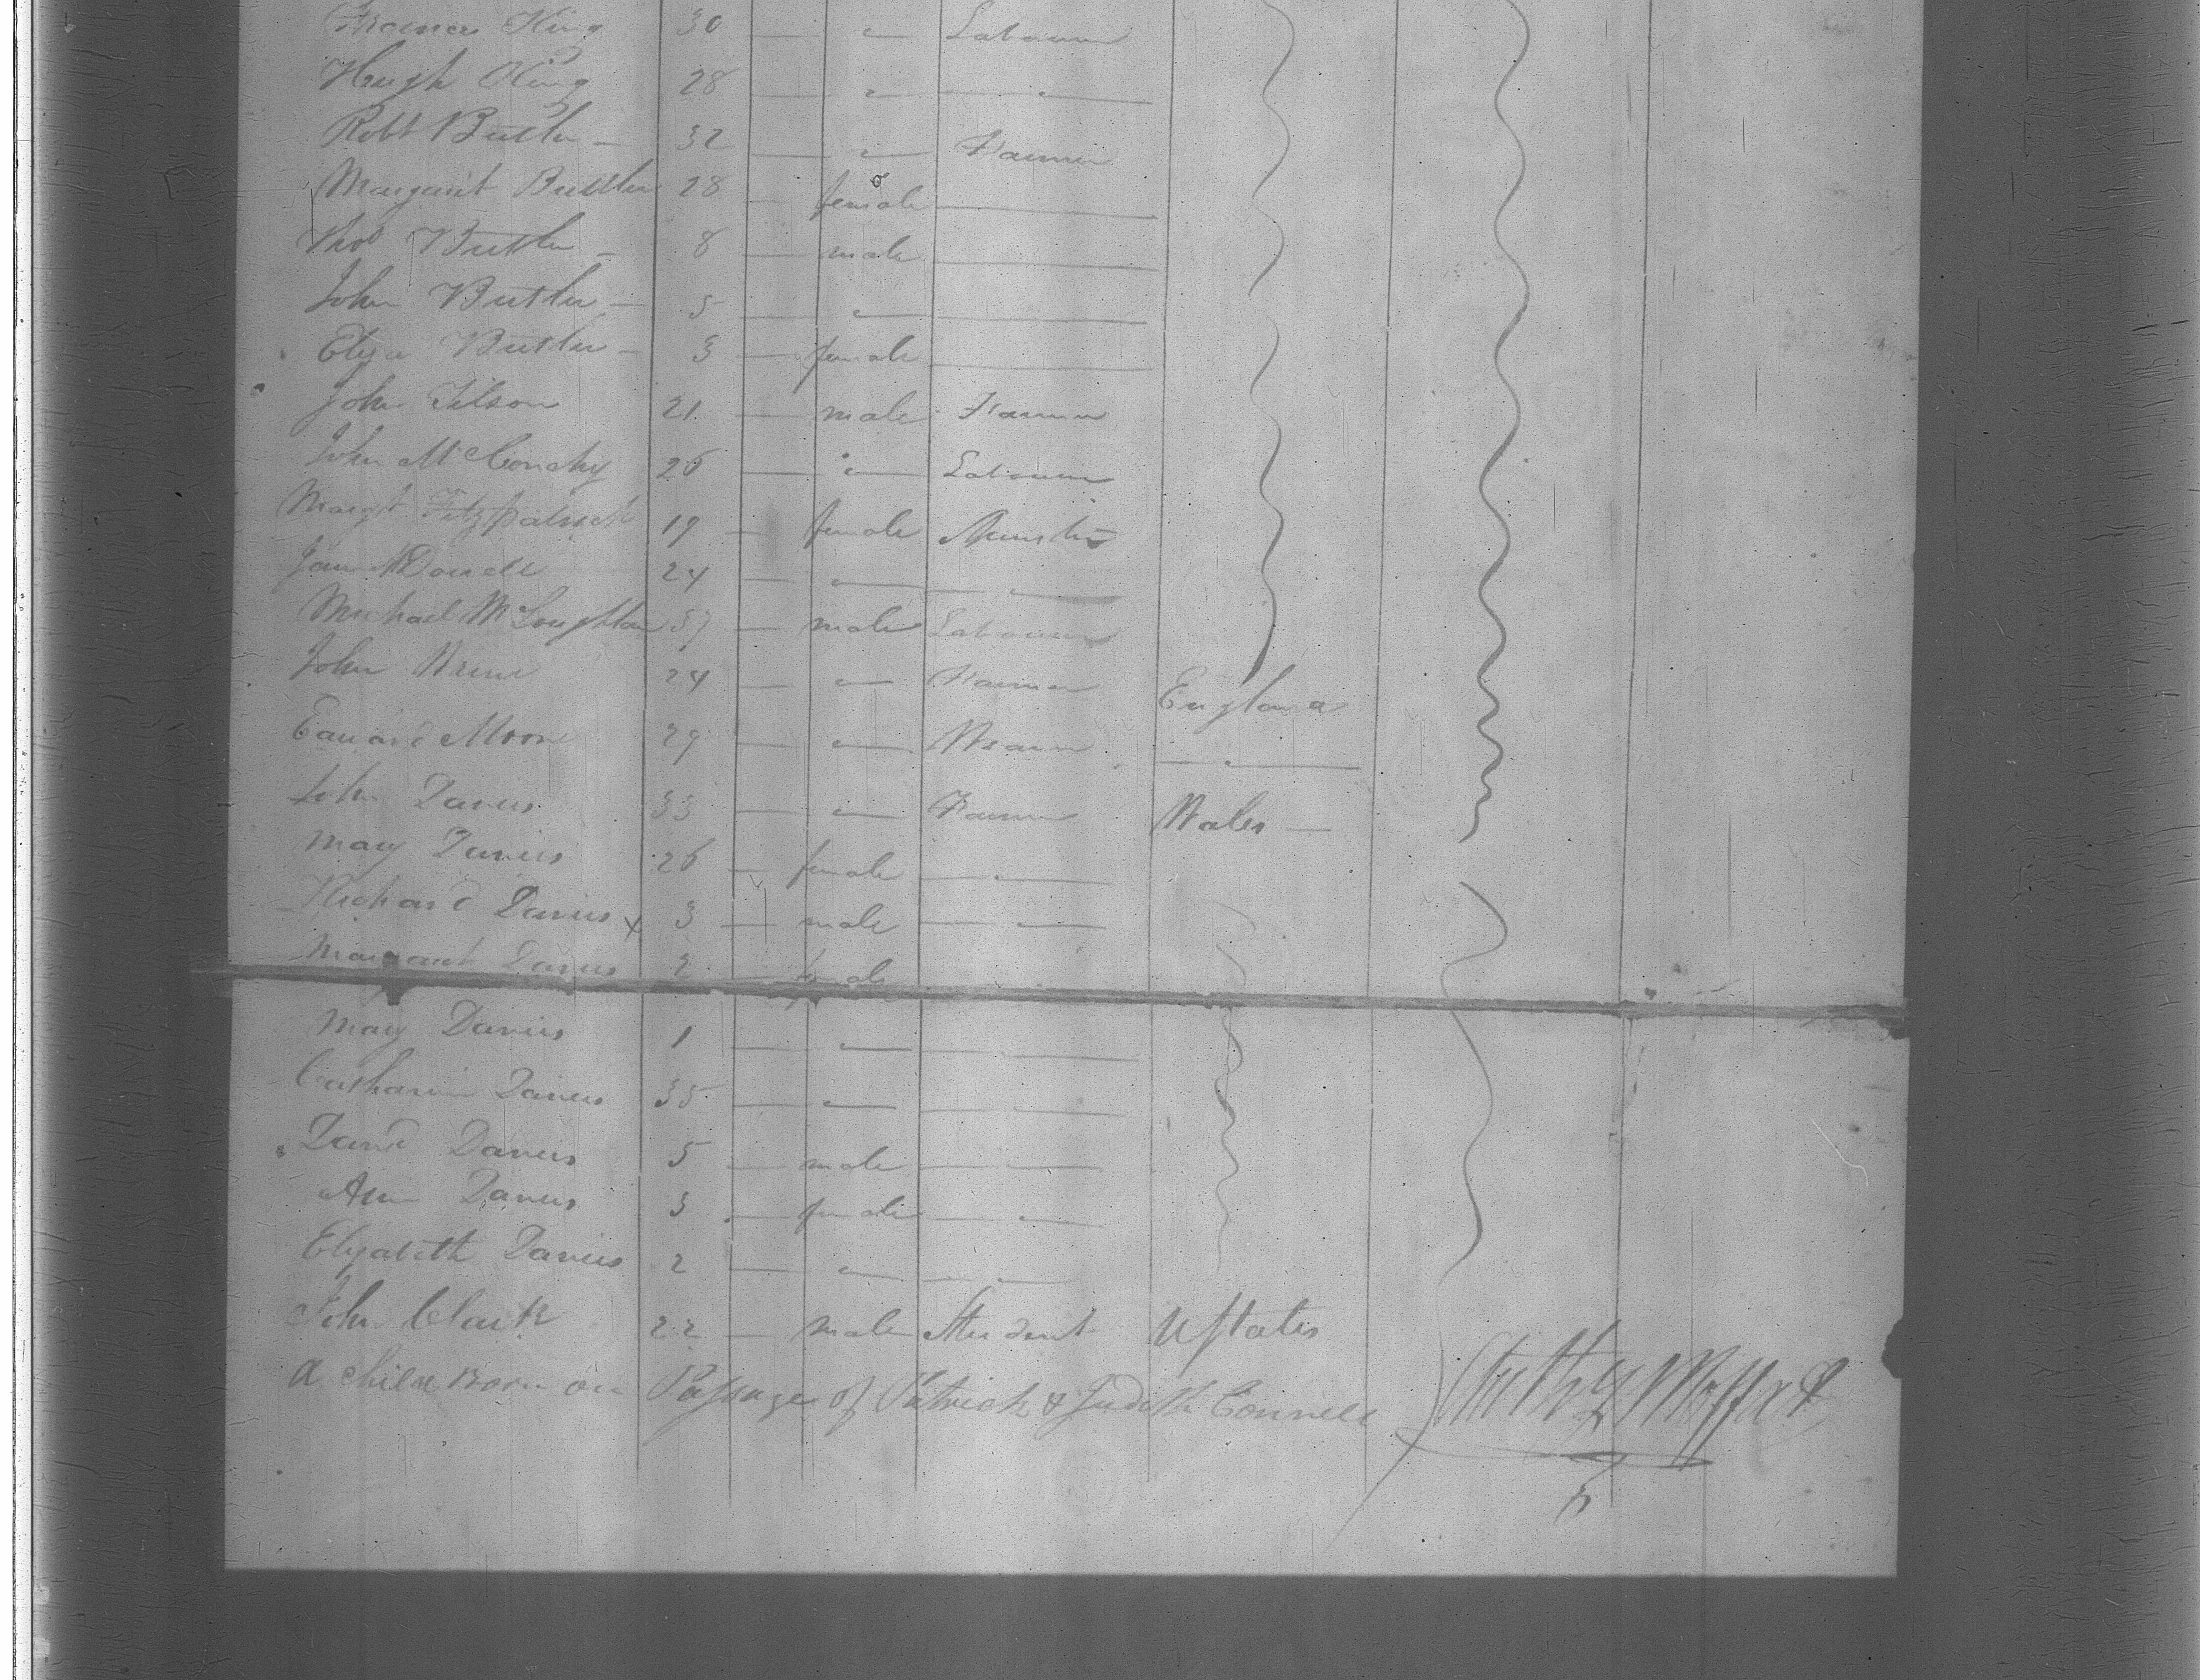 King 30 — " Labourer
Hugh King 28 — " — " —
Robt Butler — 32 — " Farmer
Margaret Butler 28 — female —
Thos Butler — 8 — male —
John Butler — 5 — " —
Eliza Butler — 3 — female —
John Tilson 21 — male Farmer
John McConchy 26 — " Labourer
Margt Fitzpatrick 19 — female
Jane McDonell 24 — " — " —
Michael McLoughlan 37 — male Labourer
John 24 — " Farmer England
Edward Moore 29 — " Weaver — " —
John Davies 33 — " Farmer Wales —
Mary Davies 26 — female — " —
Richard Davies x 3 — male — " —
Margaret Davies 2 — female
Mary Davies 1 — " — " —
Catharine Davies 35 — " — " —
David Davies 5 — male — " —
Ann Davies 3 — female — " —
Elizabeth Davies 2 — " — " —
John Clark 22 — male Student UStates
A child Born on Passage of Patrick & Judith Connell
Moffat